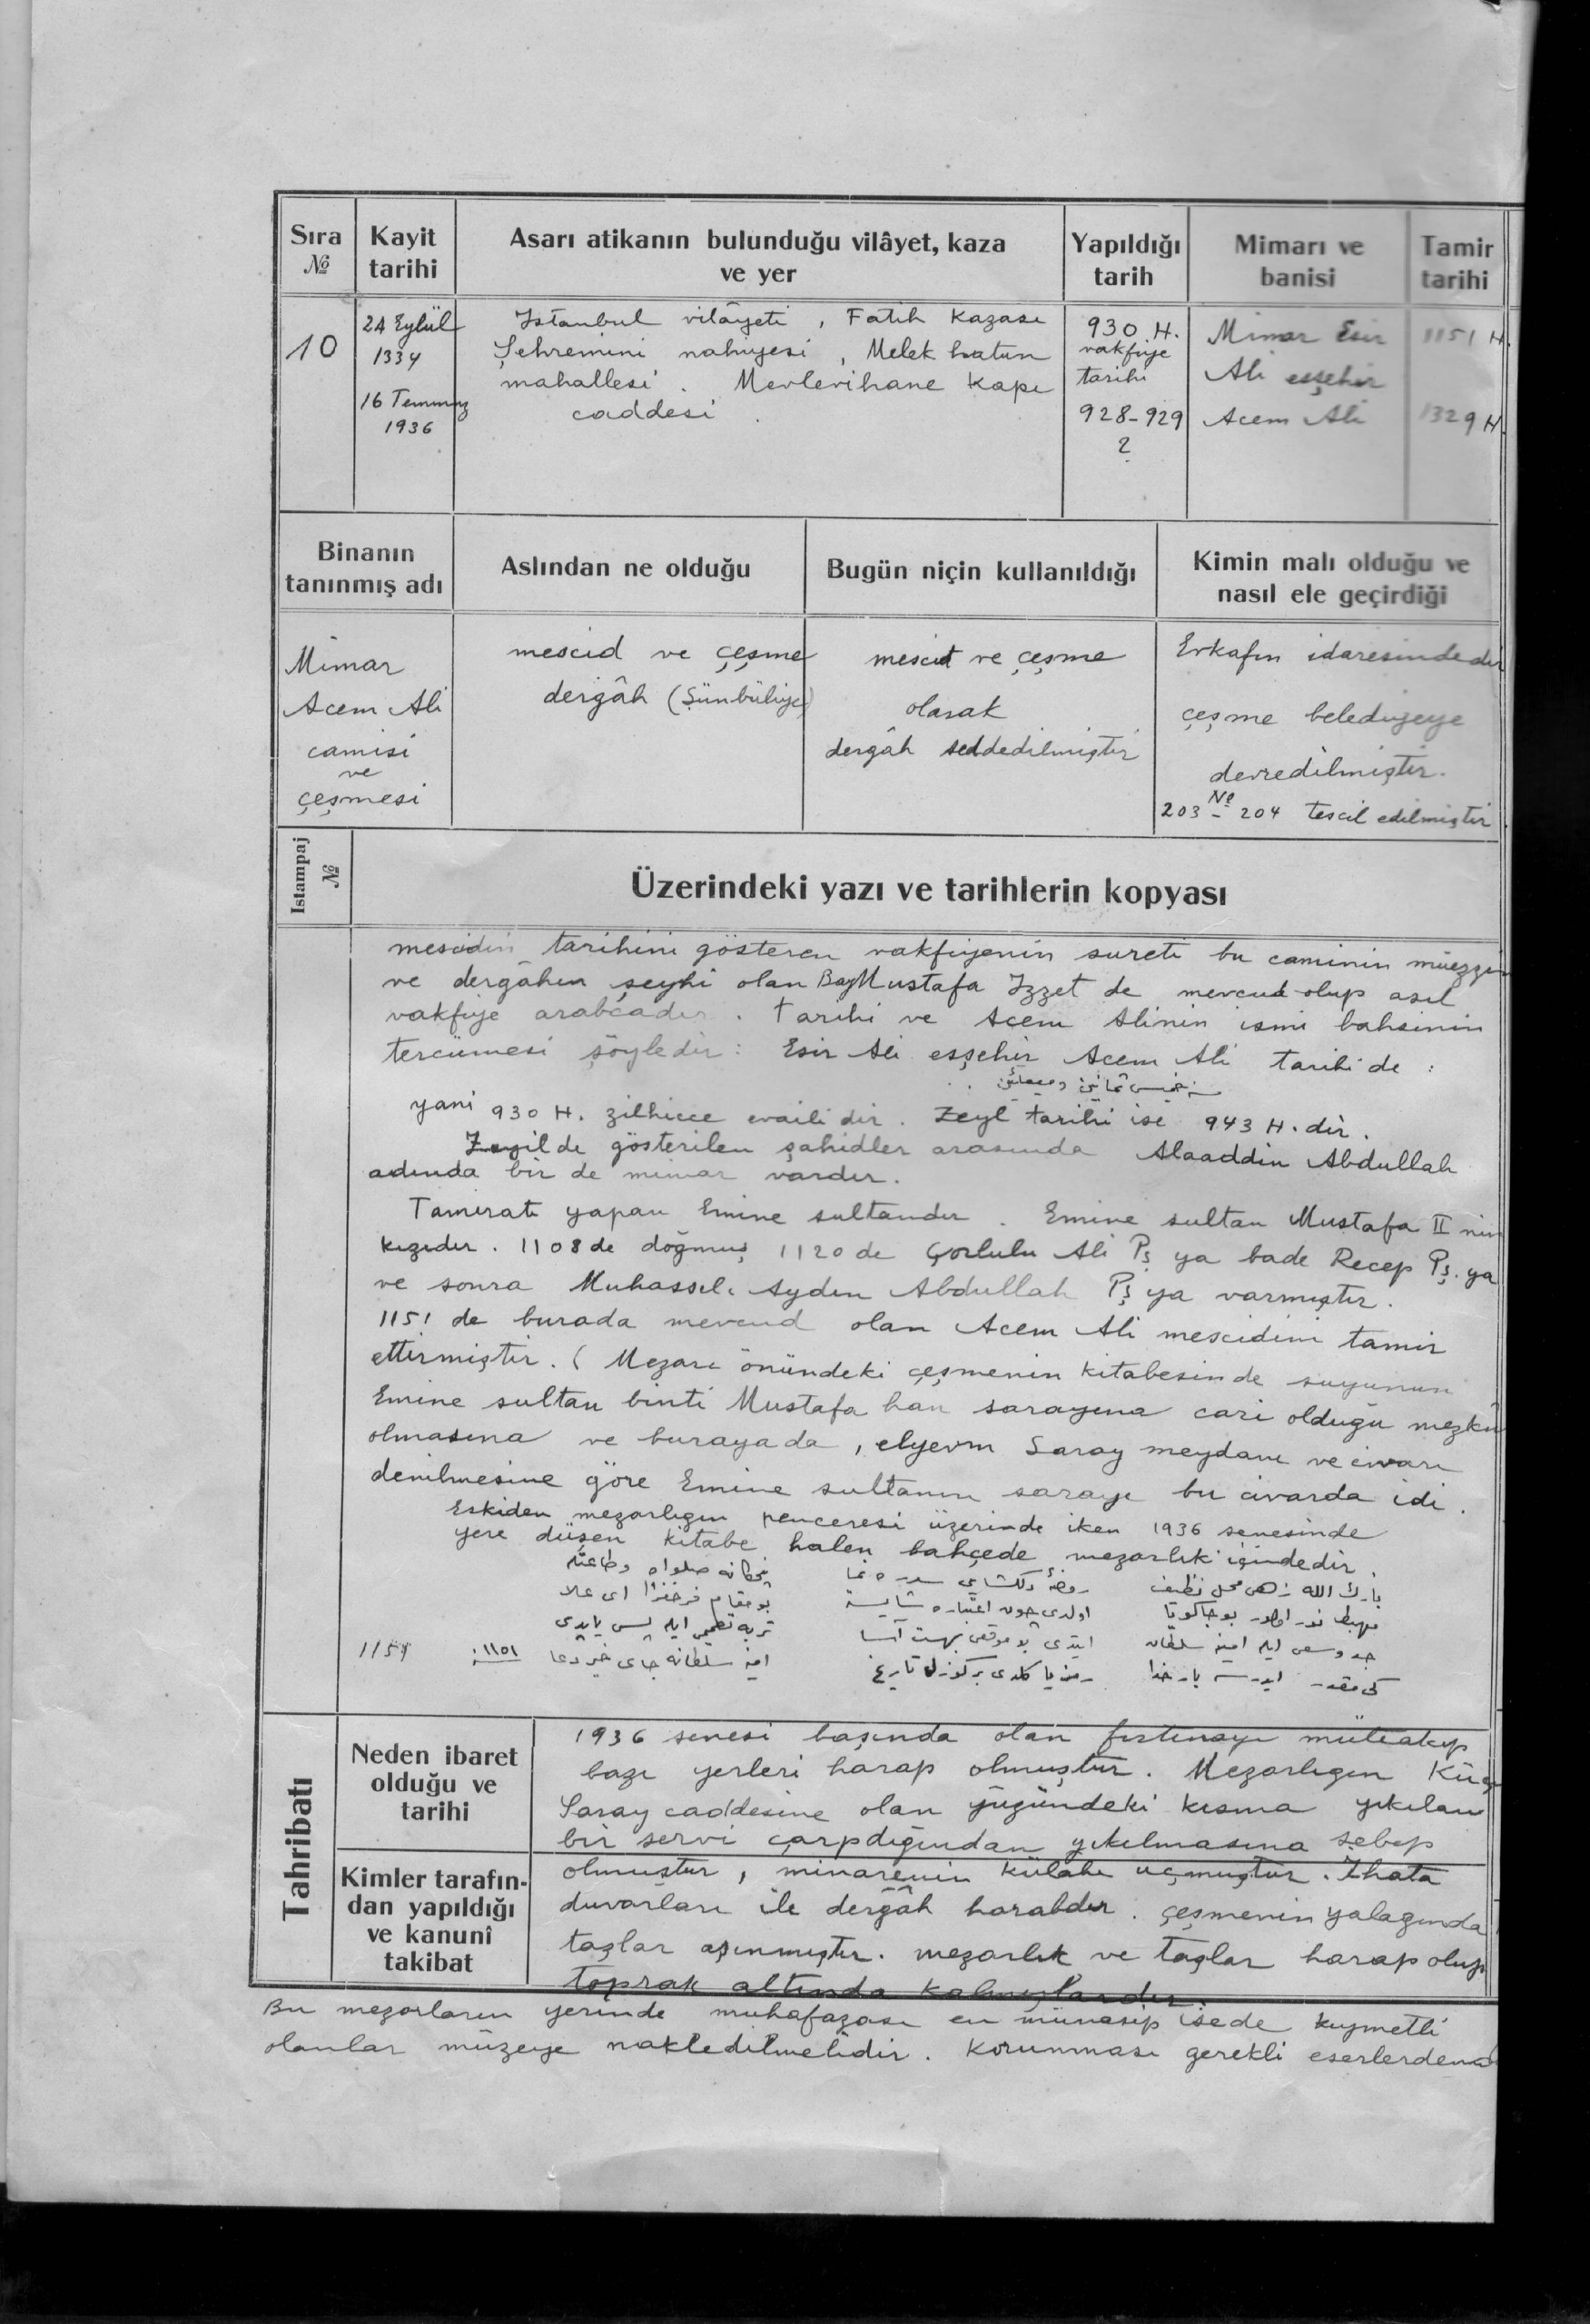 Sıra № Kayit tarihi Asarı atikanın bulunduğu vilâyet, kaza ve yer Yapıldığı tarih Mimarı ve banisi Tamir tarihi
10
24 Eylûl
1334
16 Temmuz
1936
Istanbul vilâyeti, Fatih Kazası
Şehremini nahiyesi, Melek hatun
mahallesi. Mevlevihane Kapı
caddesi.
930 H.
vakfiye
tarihi
928-929
?
Mimar Esir
Ali eşşehir
Acem Ali
1151 H.
1329 H.
Binanın tanınmış adı Aslından ne olduğu Bugün niçin kullanıldığı Kimin malı olduğu ve nasıl ele geçirdiği
Mimar
Acem Ali
camisi
ve
çeşmesi
mescid ve çeşme
dergâh (Şünbüliye)
mescit ve çeşme
olarak
dergâh seddedilmiştir
Evkafın idaresindedir
çeşme belediyeye
devredilmiştir.
№
203 - 204 tescil edilmiştir.
Istampaj №
Üzerindeki yazı ve tarihlerin kopyası
mescidin tarihini gösteren vakfiyenin sureti bu caminin müezzin
ve dergâhın şeyhi olan Bay Mustafa Izzet de mevcud olup asıl
vakfiye arabcadır. Tarihi ve Acem Alinin ismi bahsinin
tercümesi şöyledir: Esir Ali eşşehir Acem Ali tarihi de:
yani 930 H. zilhicce evaili dir. Zeyl tarihi ise 943 H. dir.
Zeyilde gösterilen şahidler arasında Alaaddin Abdullah
adında bir de mimar vardır.
Tamiratı yapan Emine sultandır. Emine sultan Mustafa II nin
kızıdır. 1108 de doğmuş 1120 de Çorlulu Ali Pş ya bade Recep Pş. ya
ve sonra Muhassıl Aydın Abdullah Pş ya varmıştır.
1151 de burada mevcud olan Acem Ali mescidini tamir
ettirmiştir. (Mezarı önündeki çeşmenin kitabesinde suyunun
Emine sultan binti Mustafa han sarayına cari olduğu mezkûr
olmasına ve burayada, elyevm Saray meydanı ve civarı
denilmesine göre Emine sultanın sarayı bu civarda idi.
Eskiden mezarlığın penceresi üzerinde iken 1936 senesinde
yere düşen kitabe halen bahçede mezarlık içindedir.
بارك الله زهى محل نظيف روضهٔ دلكشاى سدره نما
مهبط نور اولور بو جاكويا اولدى چون اعتباره شايسته بو مقام فرحفزا اى علا
جد وسعى ايله امينه سلطان ايتدى بو موقعى بهشت آسا
امينه سلطانه جاى خير دعا ١١٥١
1154
Tahribatı
Neden ibaret olduğu ve tarihi
1936 senesi başında olan fırtınayı müteakıp
bazı yerleri harap olmuştur. Mezarlığın Küç
Saray caddesine olan yüzündeki kısma yıkılan
bir servi çarpdığından yıkılmasına sebep
Kimler tarafından yapıldığı ve kanunî takibat
olmuştur, minarenin külahı uçmuştur. Ihata
duvarları ile dergâh harabdır. çeşmenin yalağında
taşlar aşınmıştır. mezarlık ve taşlar harap olup
toprak altında kalmışlardır.
Bu mezarların yerinde muhafazası en münasip isede kıymetli
olanlar müzeye nakledilmelidir. Korunması gerekli eserlerdendir